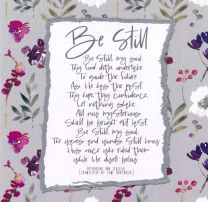 Be Still
Be Still, my soul:
Thy God doth undertake
To guide the future
As He has the past.
Thy hope, thy confidence
Let nothing shake
All now mysterious
Shall be bright at last
Be Still, my soul:
The waves and winds Still know
His voice who ruled them
while He dwelt below.
KATHARINA VON SCHLEGEL